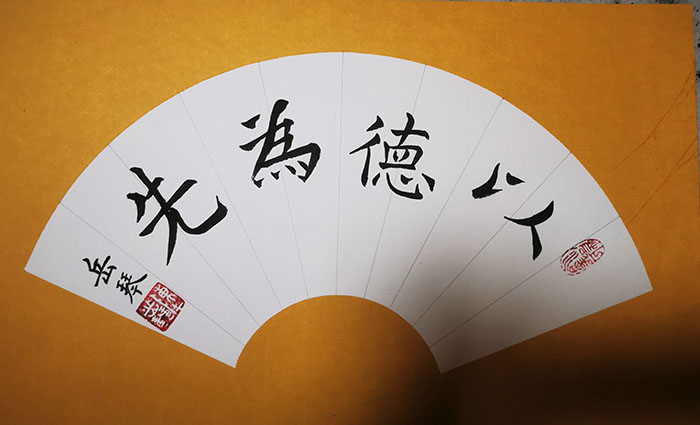 以德為先
岳琴